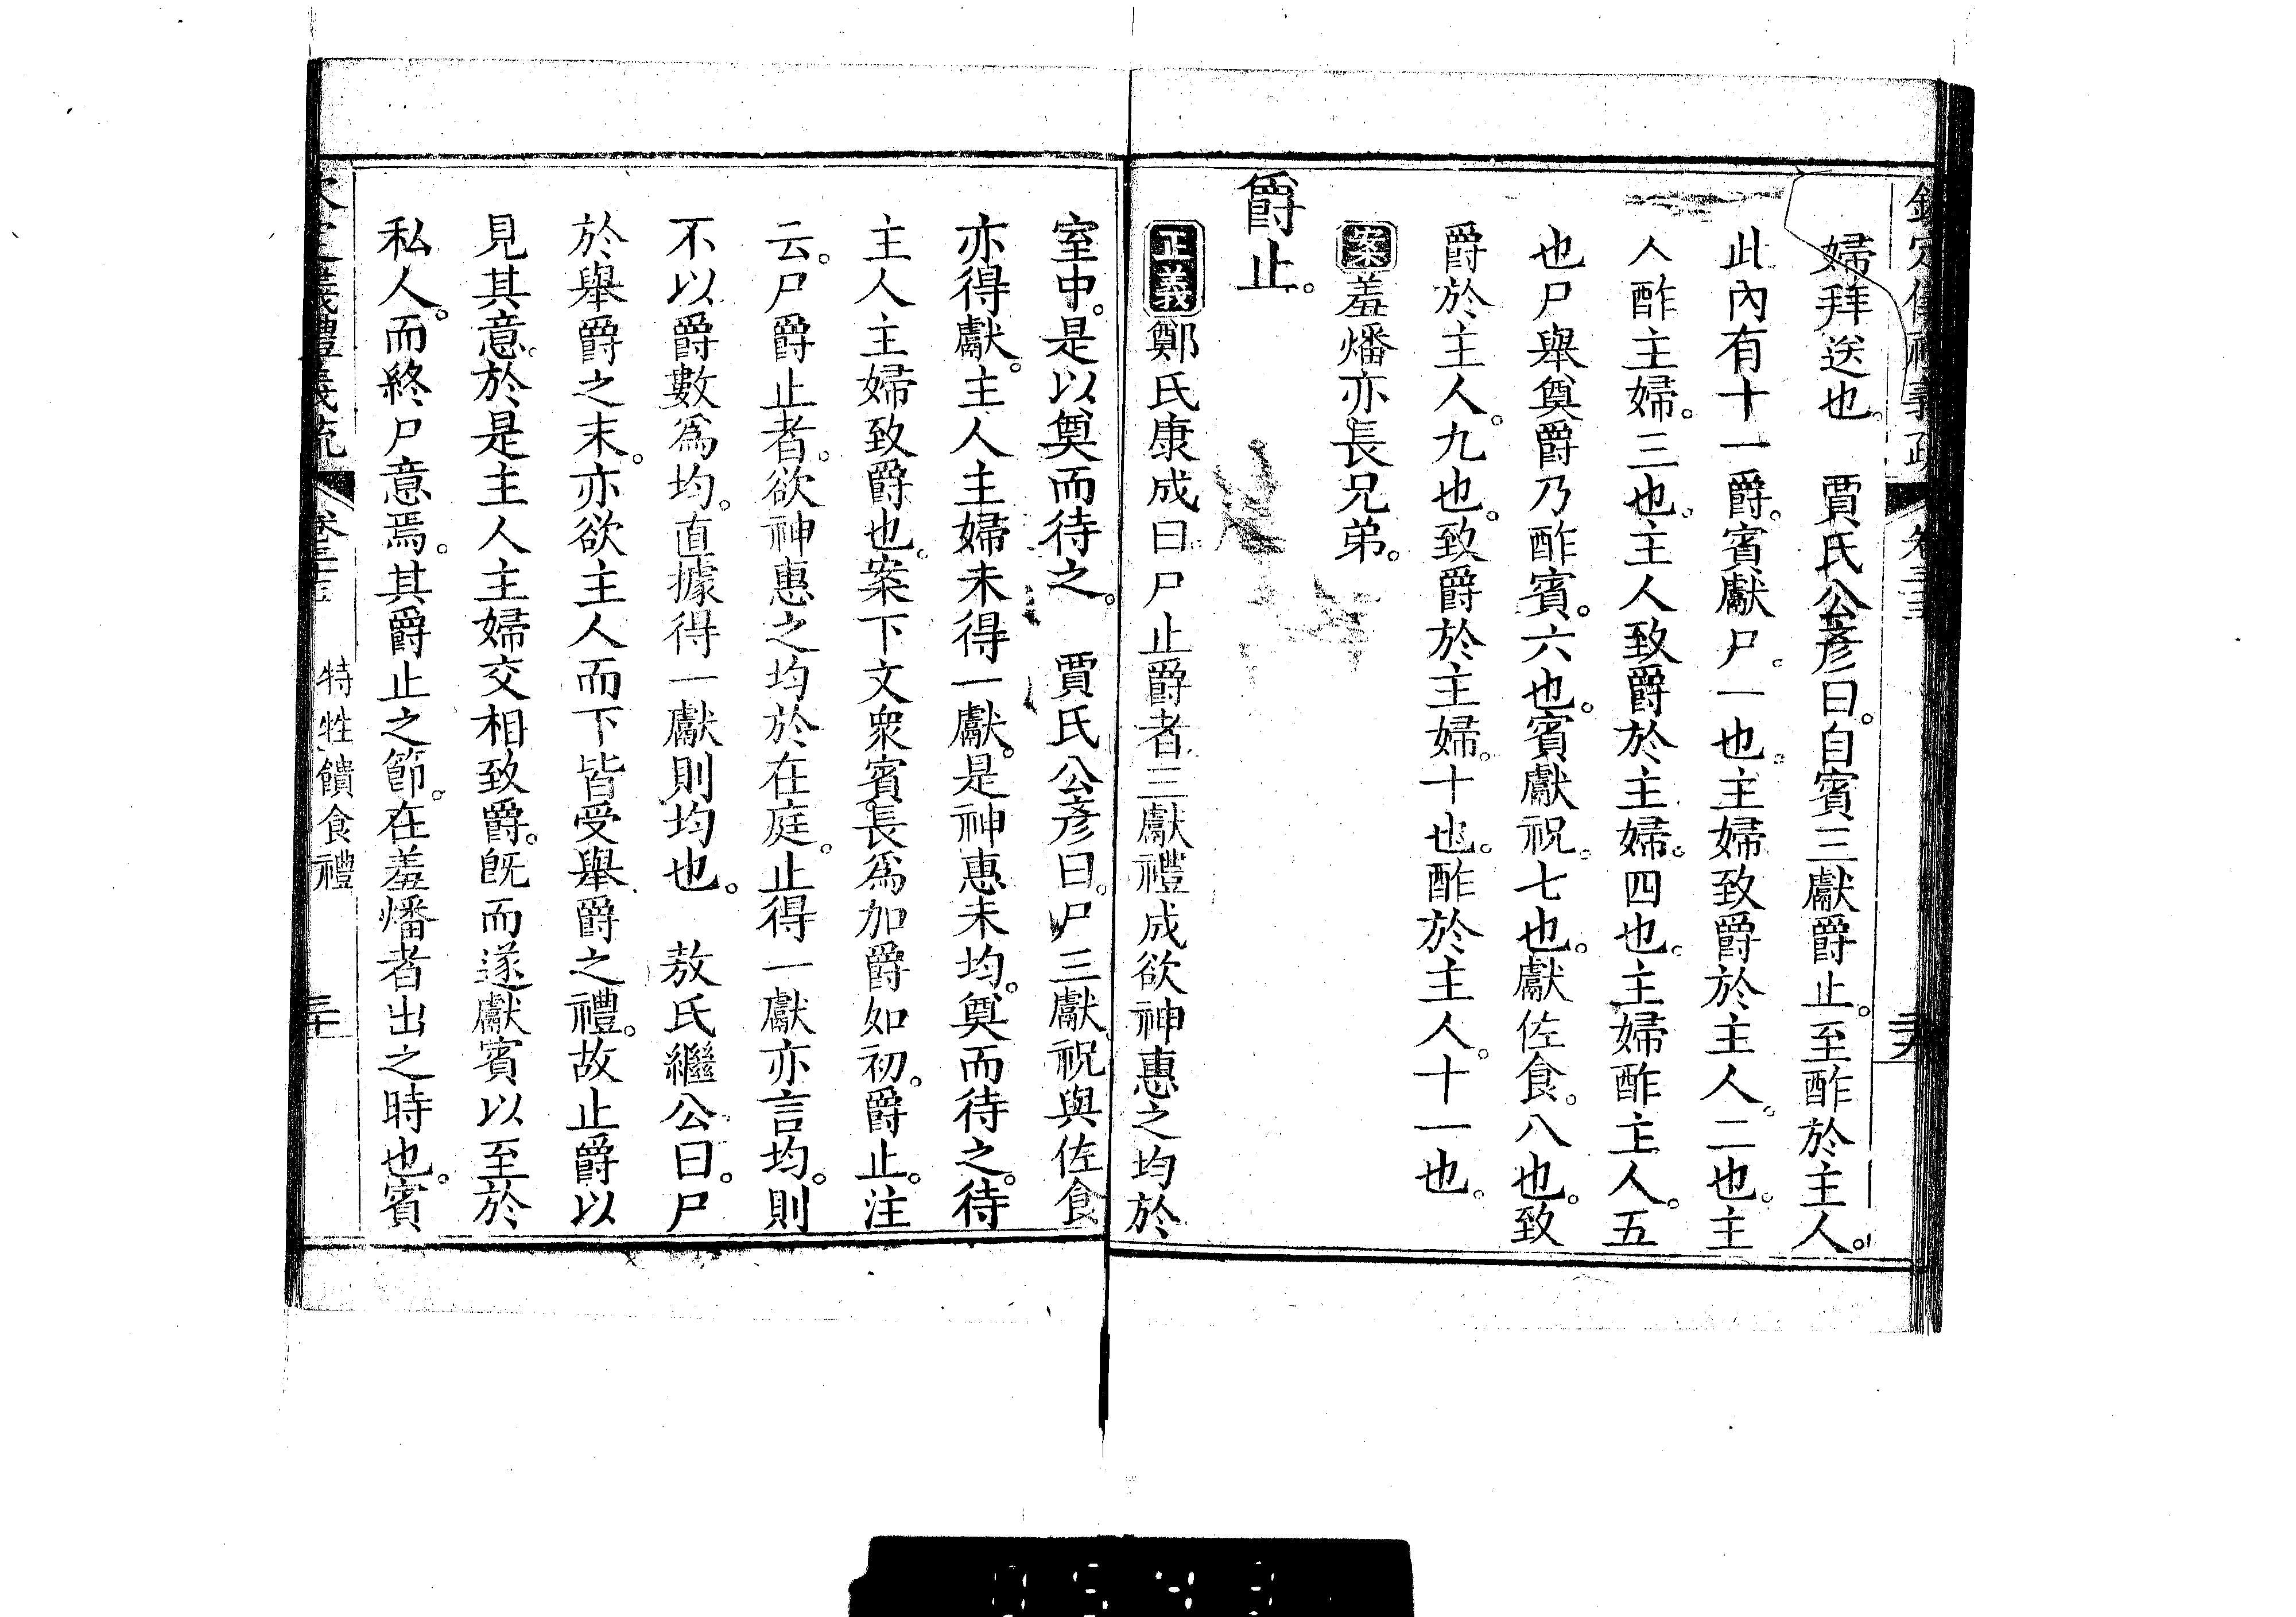 婦拜送也。　賈氏公彥曰。自賓三獻爵止。至酢於主人。
此內有十一爵。賓獻尸。一也。主婦致爵於主人。二也。主
人酢主婦。三也。主人致爵於主婦。四也。主婦酢主人。五
也尸舉奠爵乃酢賓。六也。賓獻祝。七也。獻佐食。八也。致
爵於主人。九也。致爵於主婦。十也。酢於主人。十一也。
案羞燔亦長兄弟。
爵止。
正義鄭氏康成曰。尸止爵者三獻禮成欲神惠之均於
室中。是以奠而待之。　賈氏公彥曰。尸三獻祝與佐食
亦得獻。主人主婦未得一獻。是神惠未均。奠而待之。待
主人主婦致爵也。案下文衆賓長爲加爵如初。爵止。注
云。尸爵止者。欲神惠之均於在庭。止得一獻亦言均。則
不以爵數爲均。直據得一獻則均也。　敖氏繼公曰。尸
於舉爵之末。亦欲主人而下皆受舉爵之禮。故止爵以
見其意。於是主人主婦交相致爵。旣而遂獻賓以至於
私人。而終尸意焉。其爵止之節。在羞燔者出之時也。賓
特牲饋食禮